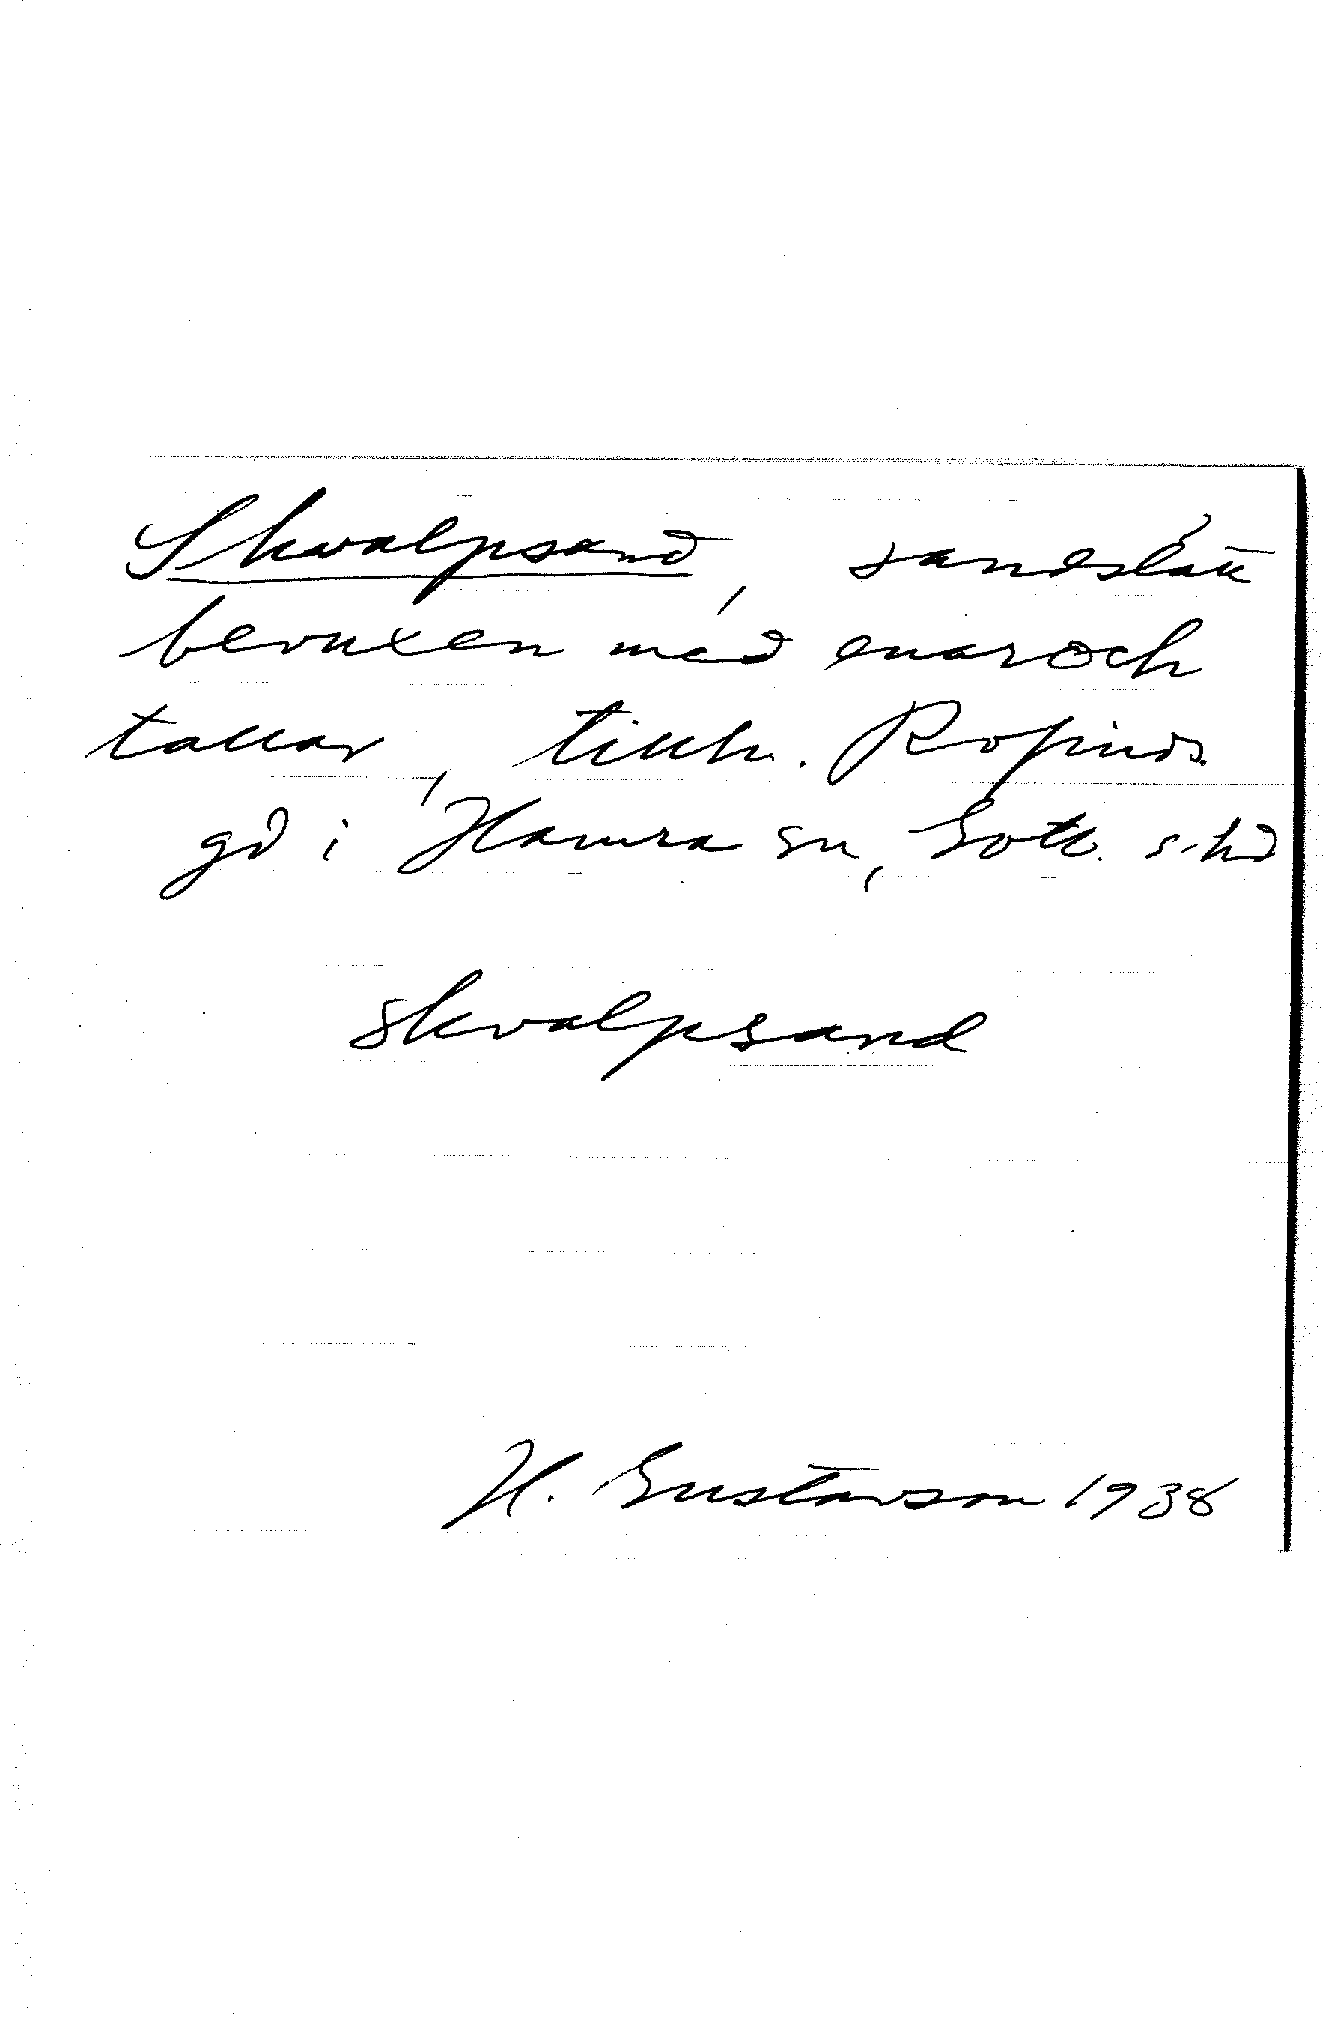 Skvalpsand, sandslätt
bevuxen med enar och
tallar, tillh. Ropinds
gd i Hamra sn, Gotl. s. hd
skvalpsand
H. Gustavson 1938